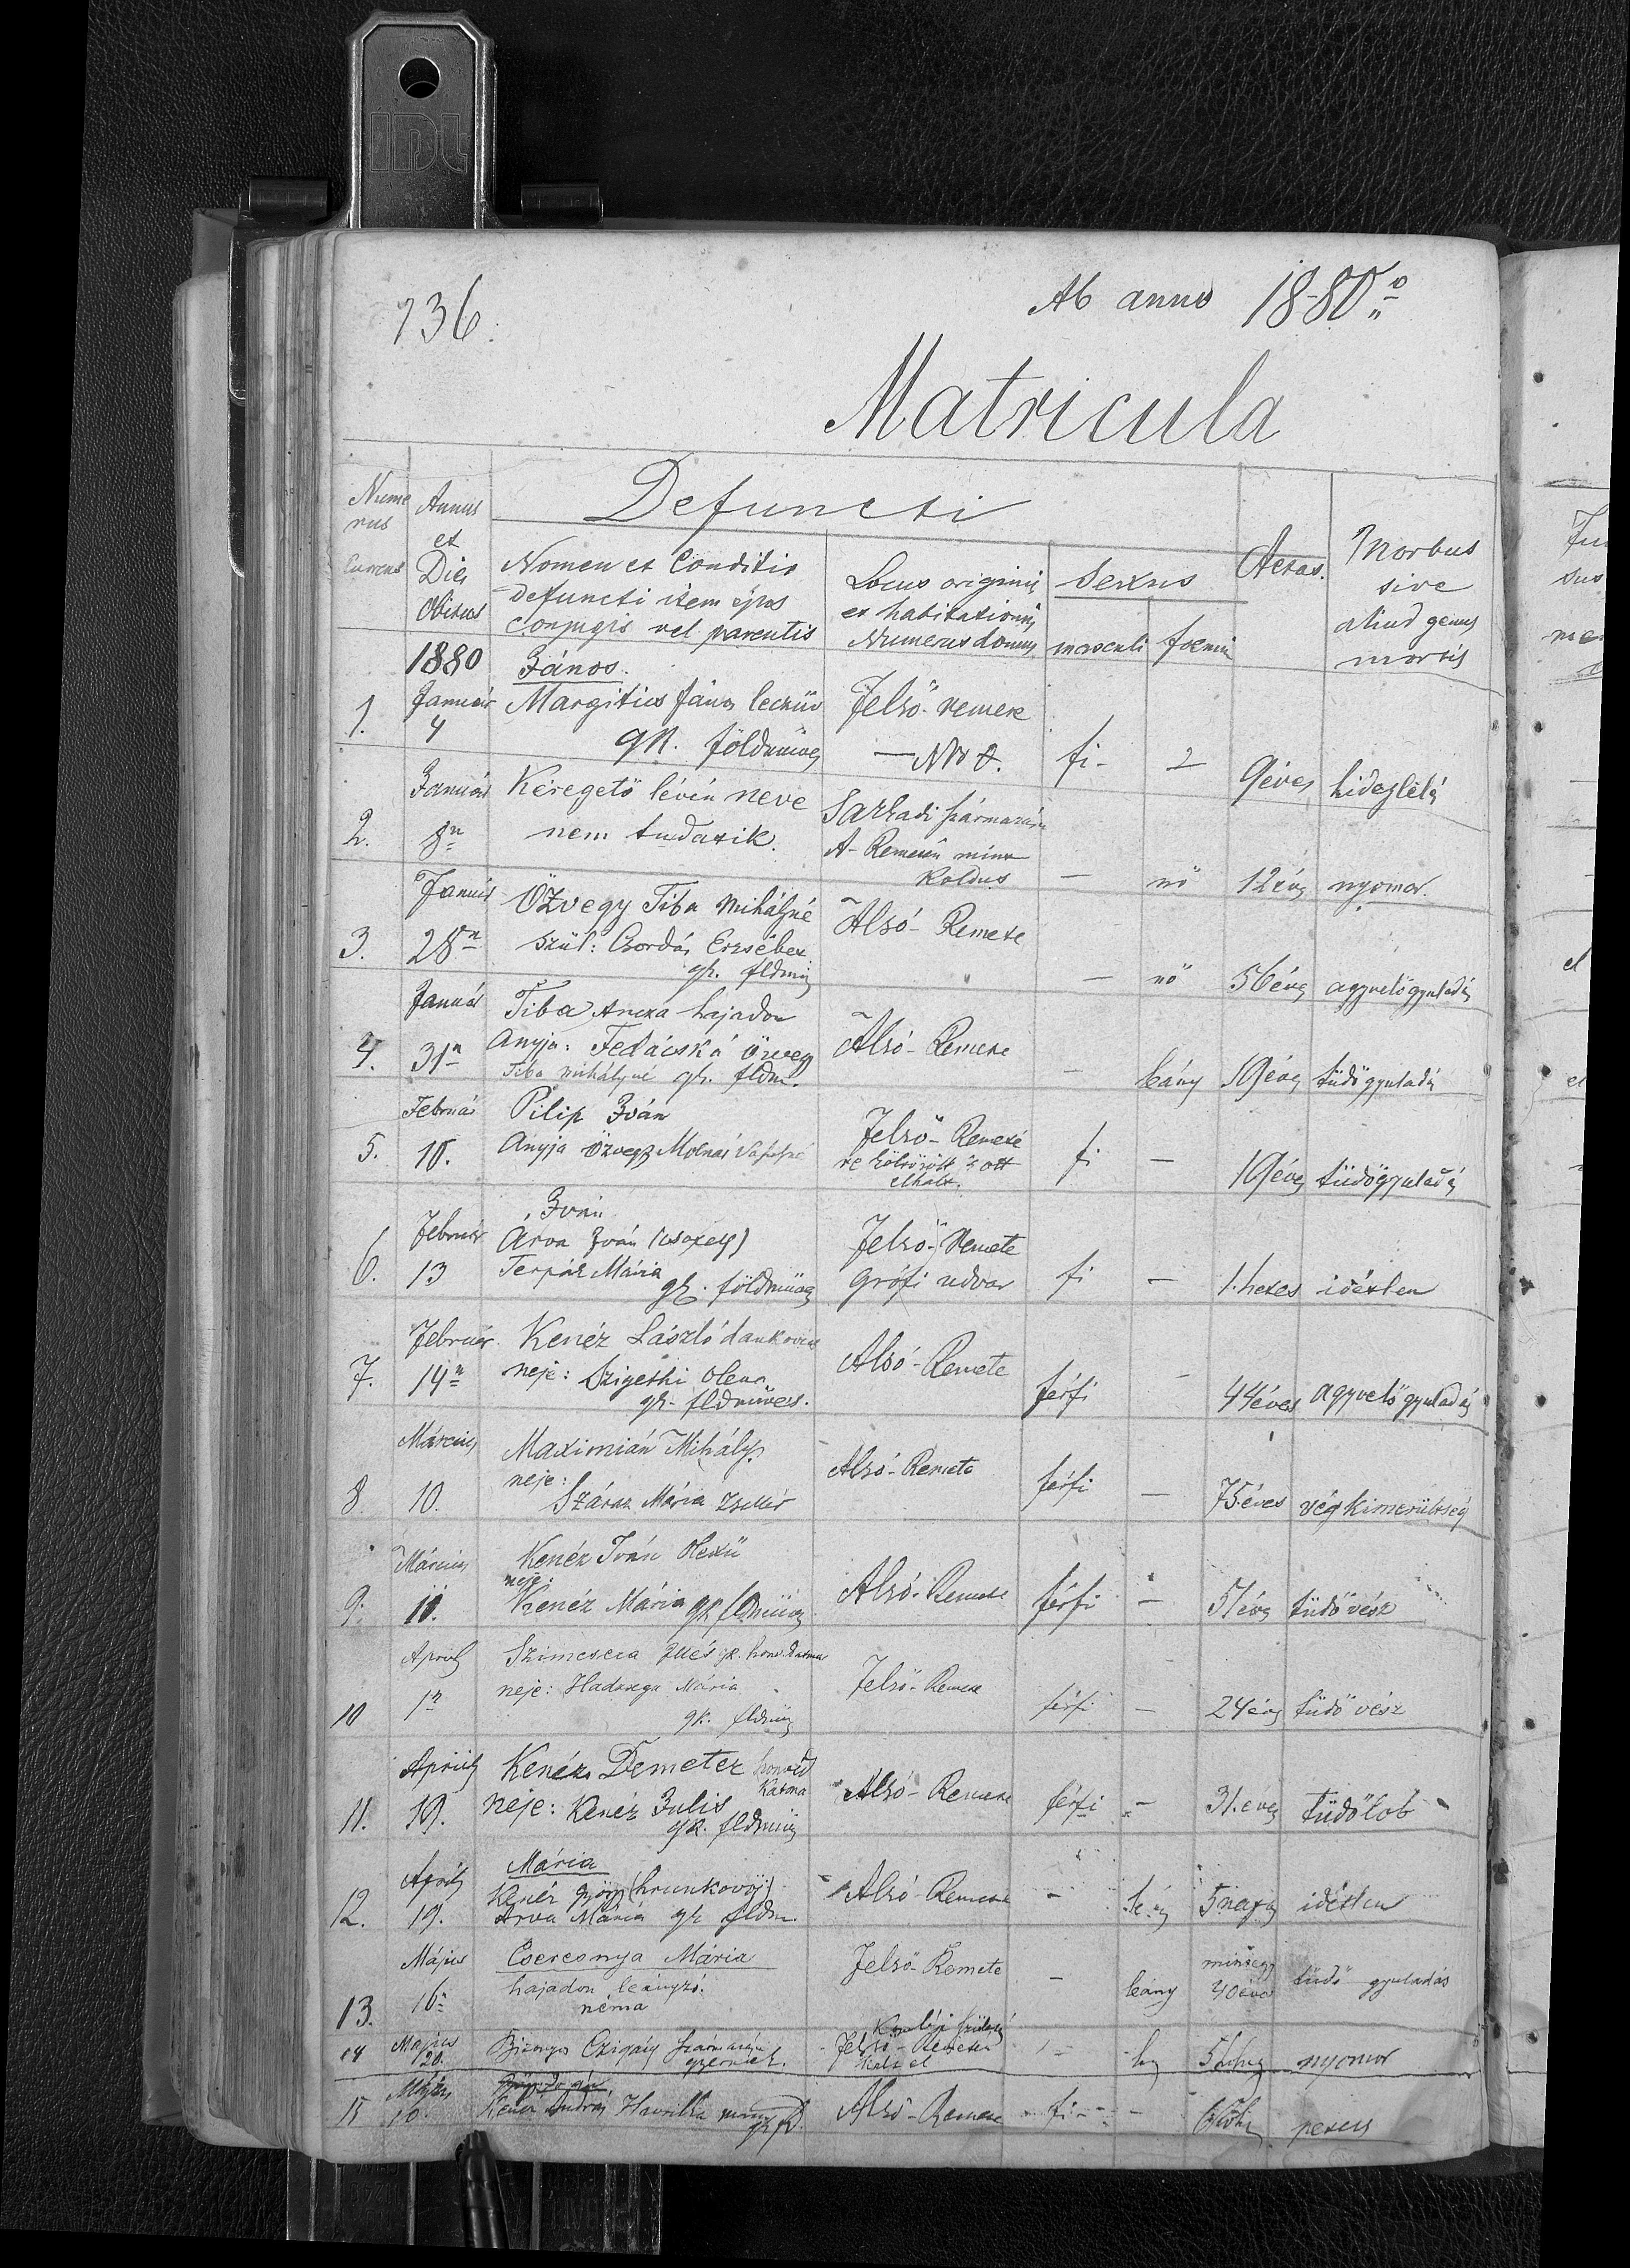 IDL
736.
Ab anno 1880
Matricula
Defuncti
Numerus currens
Annus et Dies Obitus
Nomen et Conditio defuncti item ejus conjugis vel parentis
Locus originis et habitationis Numerus domus
Sexus
masculi
foemin
Aetas.
Morbus sive aliud genus mortis
1880
1. Január 4
János.
Margitics János
gk. földmüves
Felső-Remete
fi -
9 éves
hideglelés
2. Január 8n
Kéregető lévén neve
nem tudatik.
A-Remetén mint
koldus
— nő
12 éves
nyomor.
3. Január 28n
Özvegy Tiba Mihályné
Szül: Csordás Erzsébet
gk. fldmüv
Alsó-Remete
— nő
56 éves
agyvelőgyuladás
4. Január 31n
Tiba Ancza hajadon
Anyja: Fedácská özvegy
Tiba Mihályné gk. fldm.
Alsó-Remete
— leány
19 éves
tüdőgyuladás
5. Február 10.
Pilip Iván
Anyja özvegy Molnár
Felső-Remeté
re költözött s ott
elhalt.
fi —
19 éves
tüdőgyuladás
6. Február 13
Iván
Arva Iván
Terpák Mária
gk. földmüves
Felső-Remete
Grófi udvar
fi —
1. hetes
idétlen
7. Február 14n
Kenéz László dankovics
neje: Szigethi Olena
gk. fldmüves.
Alsó-Remete
férfi -
44 éves
agyvelőgyuladás
8 Március 10.
Maximián Mihály
neje:
Száraz Mária zsellér
Alsó-Remete
férfi —
75 éves
végkimerültség
9. Március 11.
Kenéz Iván Olexü
neje:
Kenéz Mária gk fldmüves
Alsó-Remete
férfi —
51 éves
tüdővész
10 April 1n
neje: Mária
gk. fldmüv
Felső-Remete
férfi —
24 éves
tüdővész
11. Aprily 19.
Kenéz Demeter honvéd
katona
neje: Kenéz Julis
gk. fldmüv
Alsó-Remete
férfi —
31. éves
tüdőlob
12. Aprily 19.
Mária
Kenéz György (hrunkovoj)
Arva Mária gk fldm.
Alsó-Remete
- leány
5 napos
idétlen
13. Május 16n
Cseresnya Mária
hajadon leányzó.
néma
Felső-Remete
- leány
mintegy
40 éves
tüdő gyuladás
14 Május 20.
Bizonyos Czigány származásu
gyermek.
Felső-Remetén
halt el
nyomor
15 Május 16.
Kenéz András Havrilla
Alsó-Remete
fi -